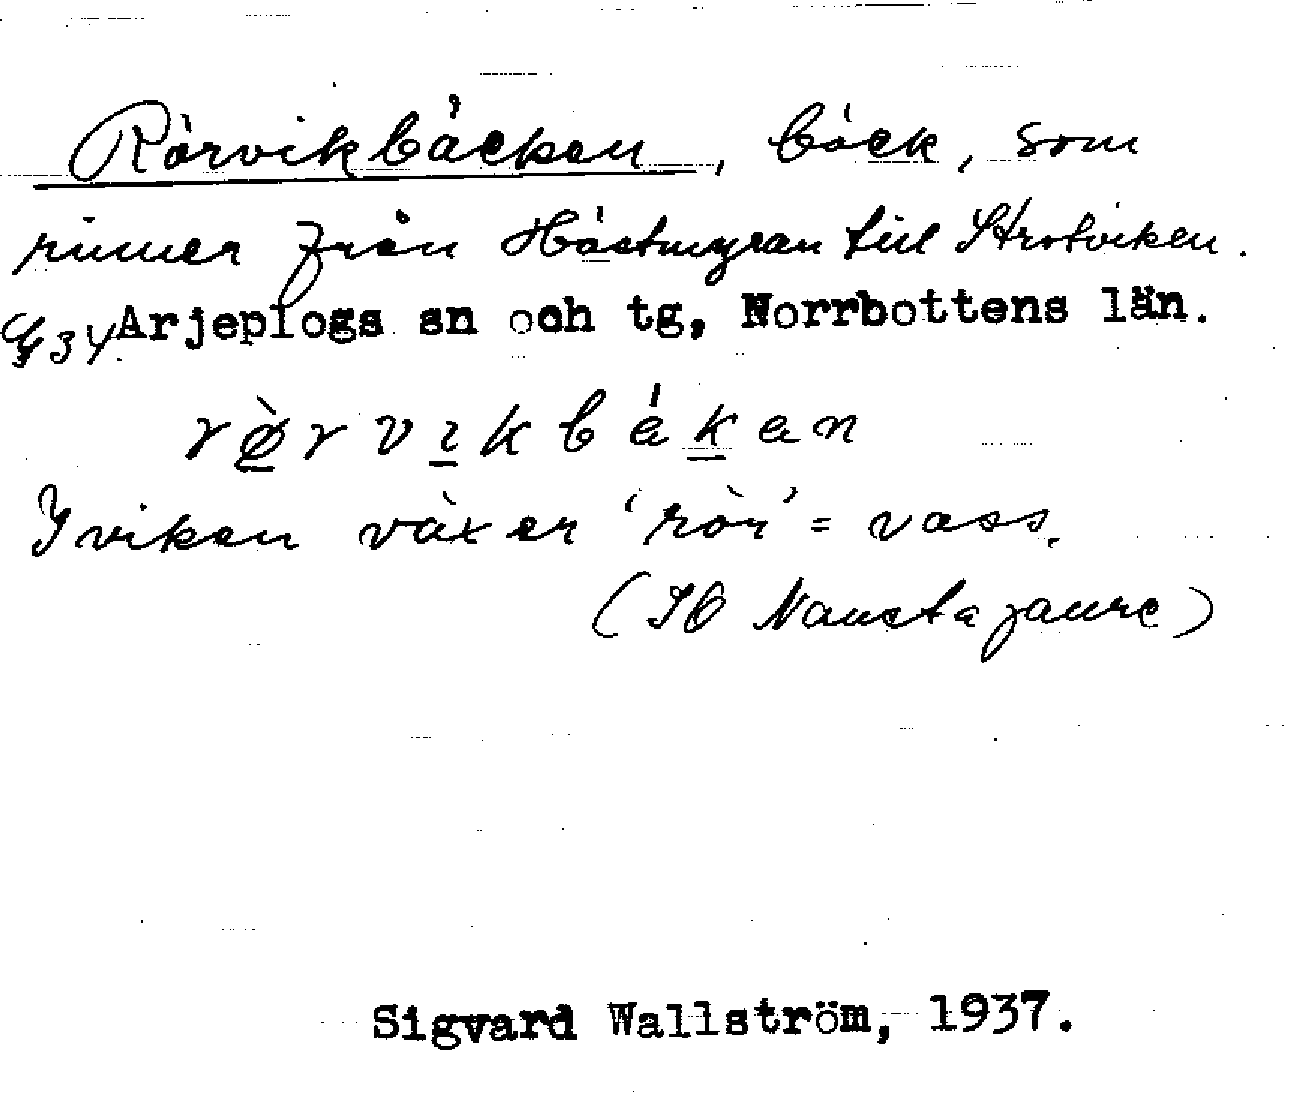 Rörvikbäcken, bäck, som
rinner från Hästmyran till Strotviken.
34 Arjeplogs sn och tg, Norrbottens län.
rø̀rvıkbákan
I viken växer 'rör' = vass.
(IO Naustajaure)
Sigvard Wallström, 1937.